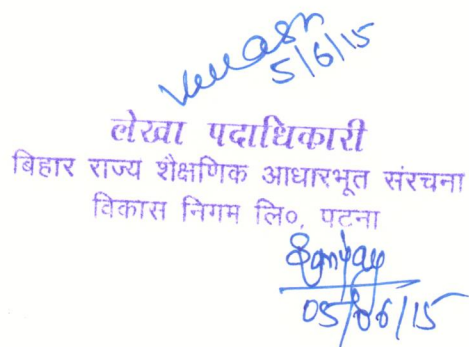 5/6/15
लेखा पदाधिकारी
बिहार राज्य शैक्षणिक आधारभूत संरचना
विकास निगम लि०, पटना
05/06/15